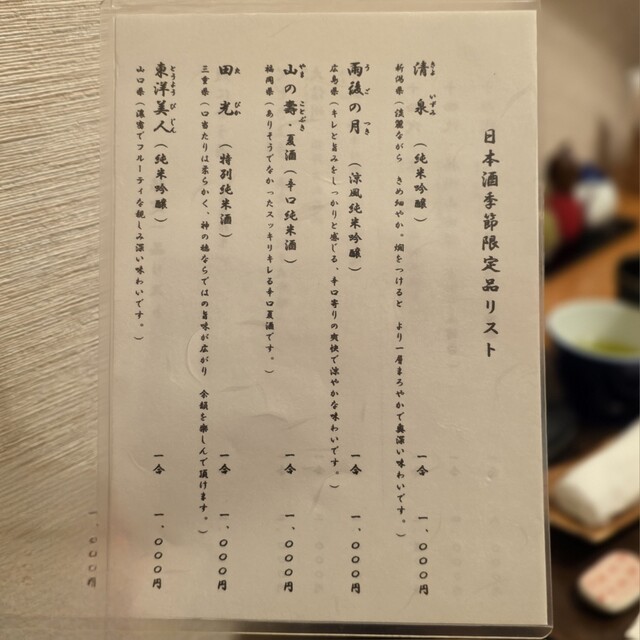 日本酒季節限定品リスト
清泉（純米吟醸） 一合 一、〇〇〇円
きよ いずみ
新潟県（淡麗ながら きめ細やか。燗をつけると より一層まろやかで奥深い味わいです。）
雨後の月（涼風純米吟醸） 一合 一、〇〇〇円
う ご つき
広島県（キレと旨みをしっかりと感じる、辛口寄りの爽快で涼やかな味わいです。）
山の壽・夏酒（辛口純米酒） 一合 一、〇〇〇円
やま ことぶき
福岡県（ありそうでなかったスッキリキレる辛口夏酒です。）
田光（特別純米酒） 一合 一、〇〇〇円
た びか
三重県（口当たりは柔らかく、神の穂ならではの旨味が広がり 余韻を楽しんで頂けます。）
東洋美人（純米吟醸） 一合 一、〇〇〇円
とうようびじん
山口県（濃密でフルーティな親しみ深い味わいです。）
一、〇〇〇円